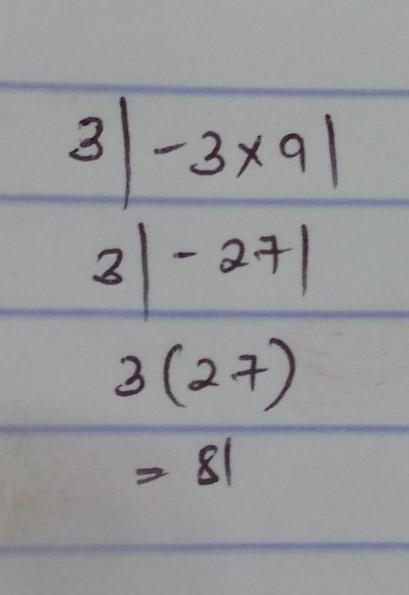 3|-3×9|
3|-27|
3(27)
= 81